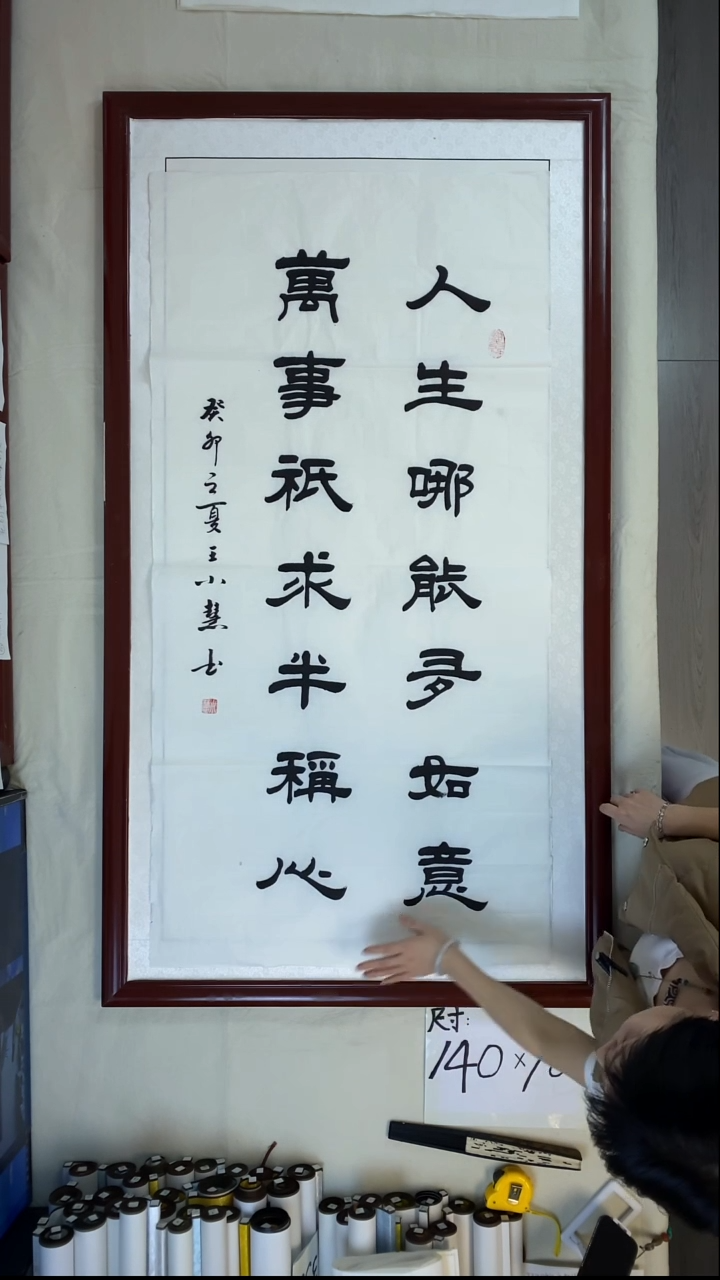 人生哪能多如意
萬事祇求半稱心
癸卯立夏王小慧书
尺寸:
140×70